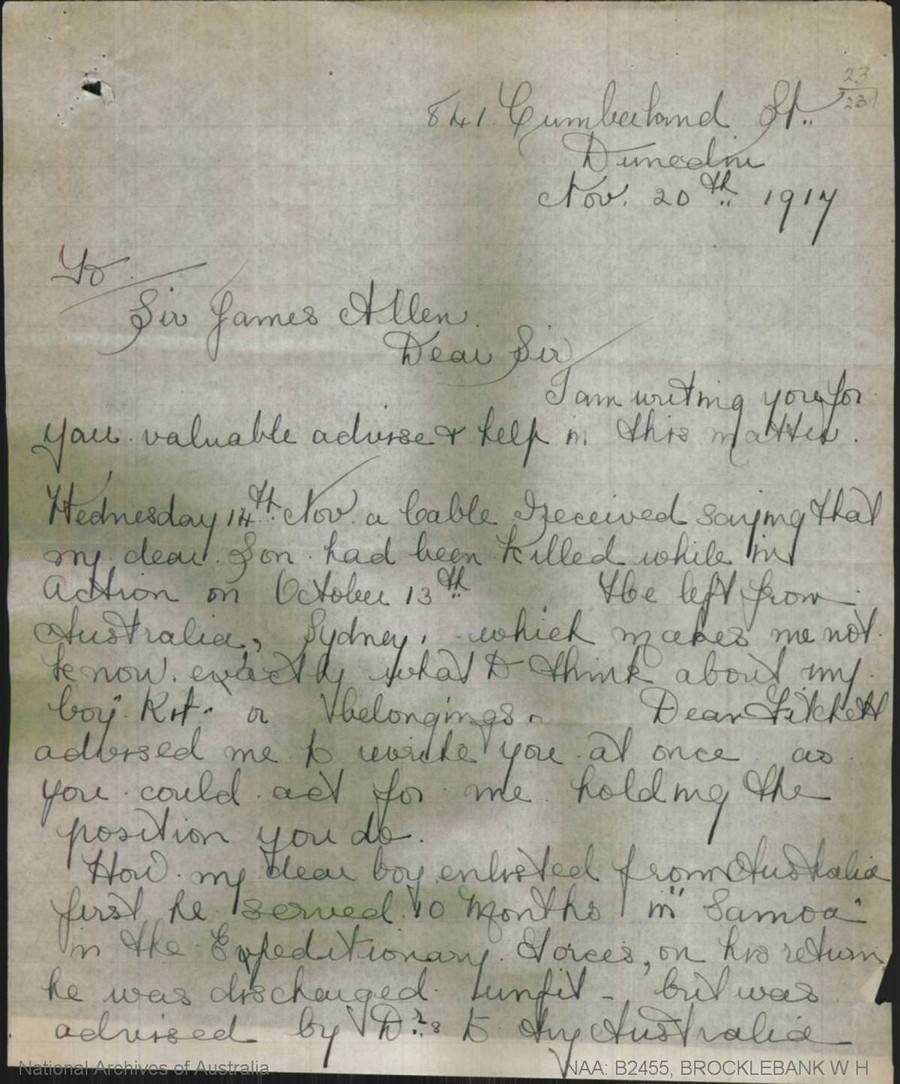 23
23
841 Cumberland St.
Dunedin
Nov. 20th 1917
To
Sir James Allen
Dear Sir
I am writing you for
your valuable advise & help in this matter.
Wednesday 14th Nov. a Cable I received saying that
my dear Son had been Killed while in
Action on October 13th He left from
Australia, Sydney, which makes me not
know exactly what to think about my
boy Kit or belongings. Dean Fitchett
advised me to write you at once as
you could act for me holding the
position you do.
How my dear boy enlisted from Australia
first he served 10 Months in "Samoa"
in the Expeditionary Forces, on his return
he was discharged unfit - but was
advised by Drs to try Australia
National Archives of Australia
NAA: B2455, BROCKLEBANK W H